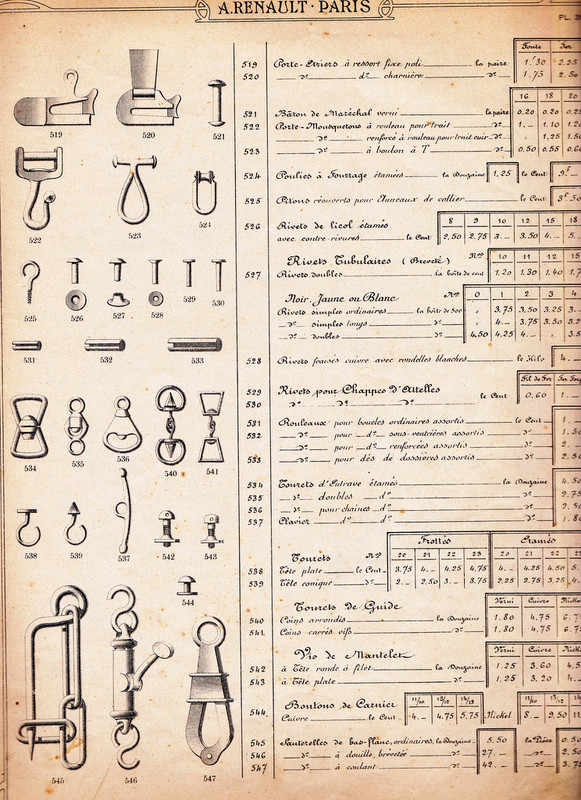 A. RENAULT · PARIS
PL.
Fonte
519 Porte-Etriers à ressort fixe poli la paire 1.30 2.25
520 d° charnière d° 1.75 2.50
16 18 20
521 Bâton de Maréchal verni la paire 0.20 0.20
522 Porte-Mousquetons à rouleau pour trait d° 1.- 1.10
d° renforcé à rouleau pour trait cuir d° 1.25
523 d° à boulon à T d° 0.50 0.55
524 Poulies à Fourrage étamées la Douzaine 1.25 le Cent
525 Pitons réouverts pour Anneaux de collier le Cent
526 Rivets de licol étamés 8 9 10 12 15 18
avec contre-rivures le Cent 2.50 2.75 3.- 3.50 4.- 5.
Rivets Tubulaires (Breveté) Nos 9 10 11 12
527 Rivets doubles la boîte de cent 1.20 1.30 1.40
Noir, Jaune ou Blanc Nos 0 1 2 3 4
Rivets simples ordinaires la boîte de 500 3.75 3.50 3.25 3.
d° simples longs d° 4.- 3.75 3.50
d° doubles d° 4.50 4.25 4.-
528 Rivets fraisés cuivre avec rondelles blanches le Kilo 4.
529 Rivets pour Chappes d'Attelles le Cent Fil de Fer 0.60 1.
530 d° d° d°
531 Rouleaux pour boucles ordinaires assortis le Cent
532 d° pour d° sous-ventrières assortis d°
d° pour d° renforcées assortis d°
533 d° pour dés de dossières assortis d°
534 Tourets d'Entrave étamés la Douzaine
535 d° doubles d° d°
536 d° pour chaînes d° d°
537 Clavier d° d° d°
Frottés Etamés
Tourets Nos 20 21 22 23 20 21 22 23
538 Tête plate le Cent 3.75 4.- 4.25 4.75 4.- 4.25 4.50
539 Tête conique d° 2.- 2.50 3.- 3.75 2.25 2.75 3.25
Tourets de Guide Verni Cuivre
540 Coins arrondis la Douzaine 1.80 4.75
541 Coins carrés vifs d° 1.80 4.75
Vis de Mantelet Verni Cuivre
542 à Tête ronde à filet la Douzaine 1.25 3.60
543 à Tête plate d° 1.25 3.20
Boutons de Carnier 11/10 13/12 14/13
544 Cuivre le Cent 4.- 4.75 5.75 Nickel 8.- 9.50
545 Sauterelles de bas-flanc, ordinaires, la Douzaine 5.50 la Pièce
546 d° à douille, brevetée d° 27.-
547 d° à coulant d° 42.-
519
520
521
522
523
524
525
526
527
528
529
530
531
532
533
534
535
536
540
541
538
539
537
542
543
544
545
546
547